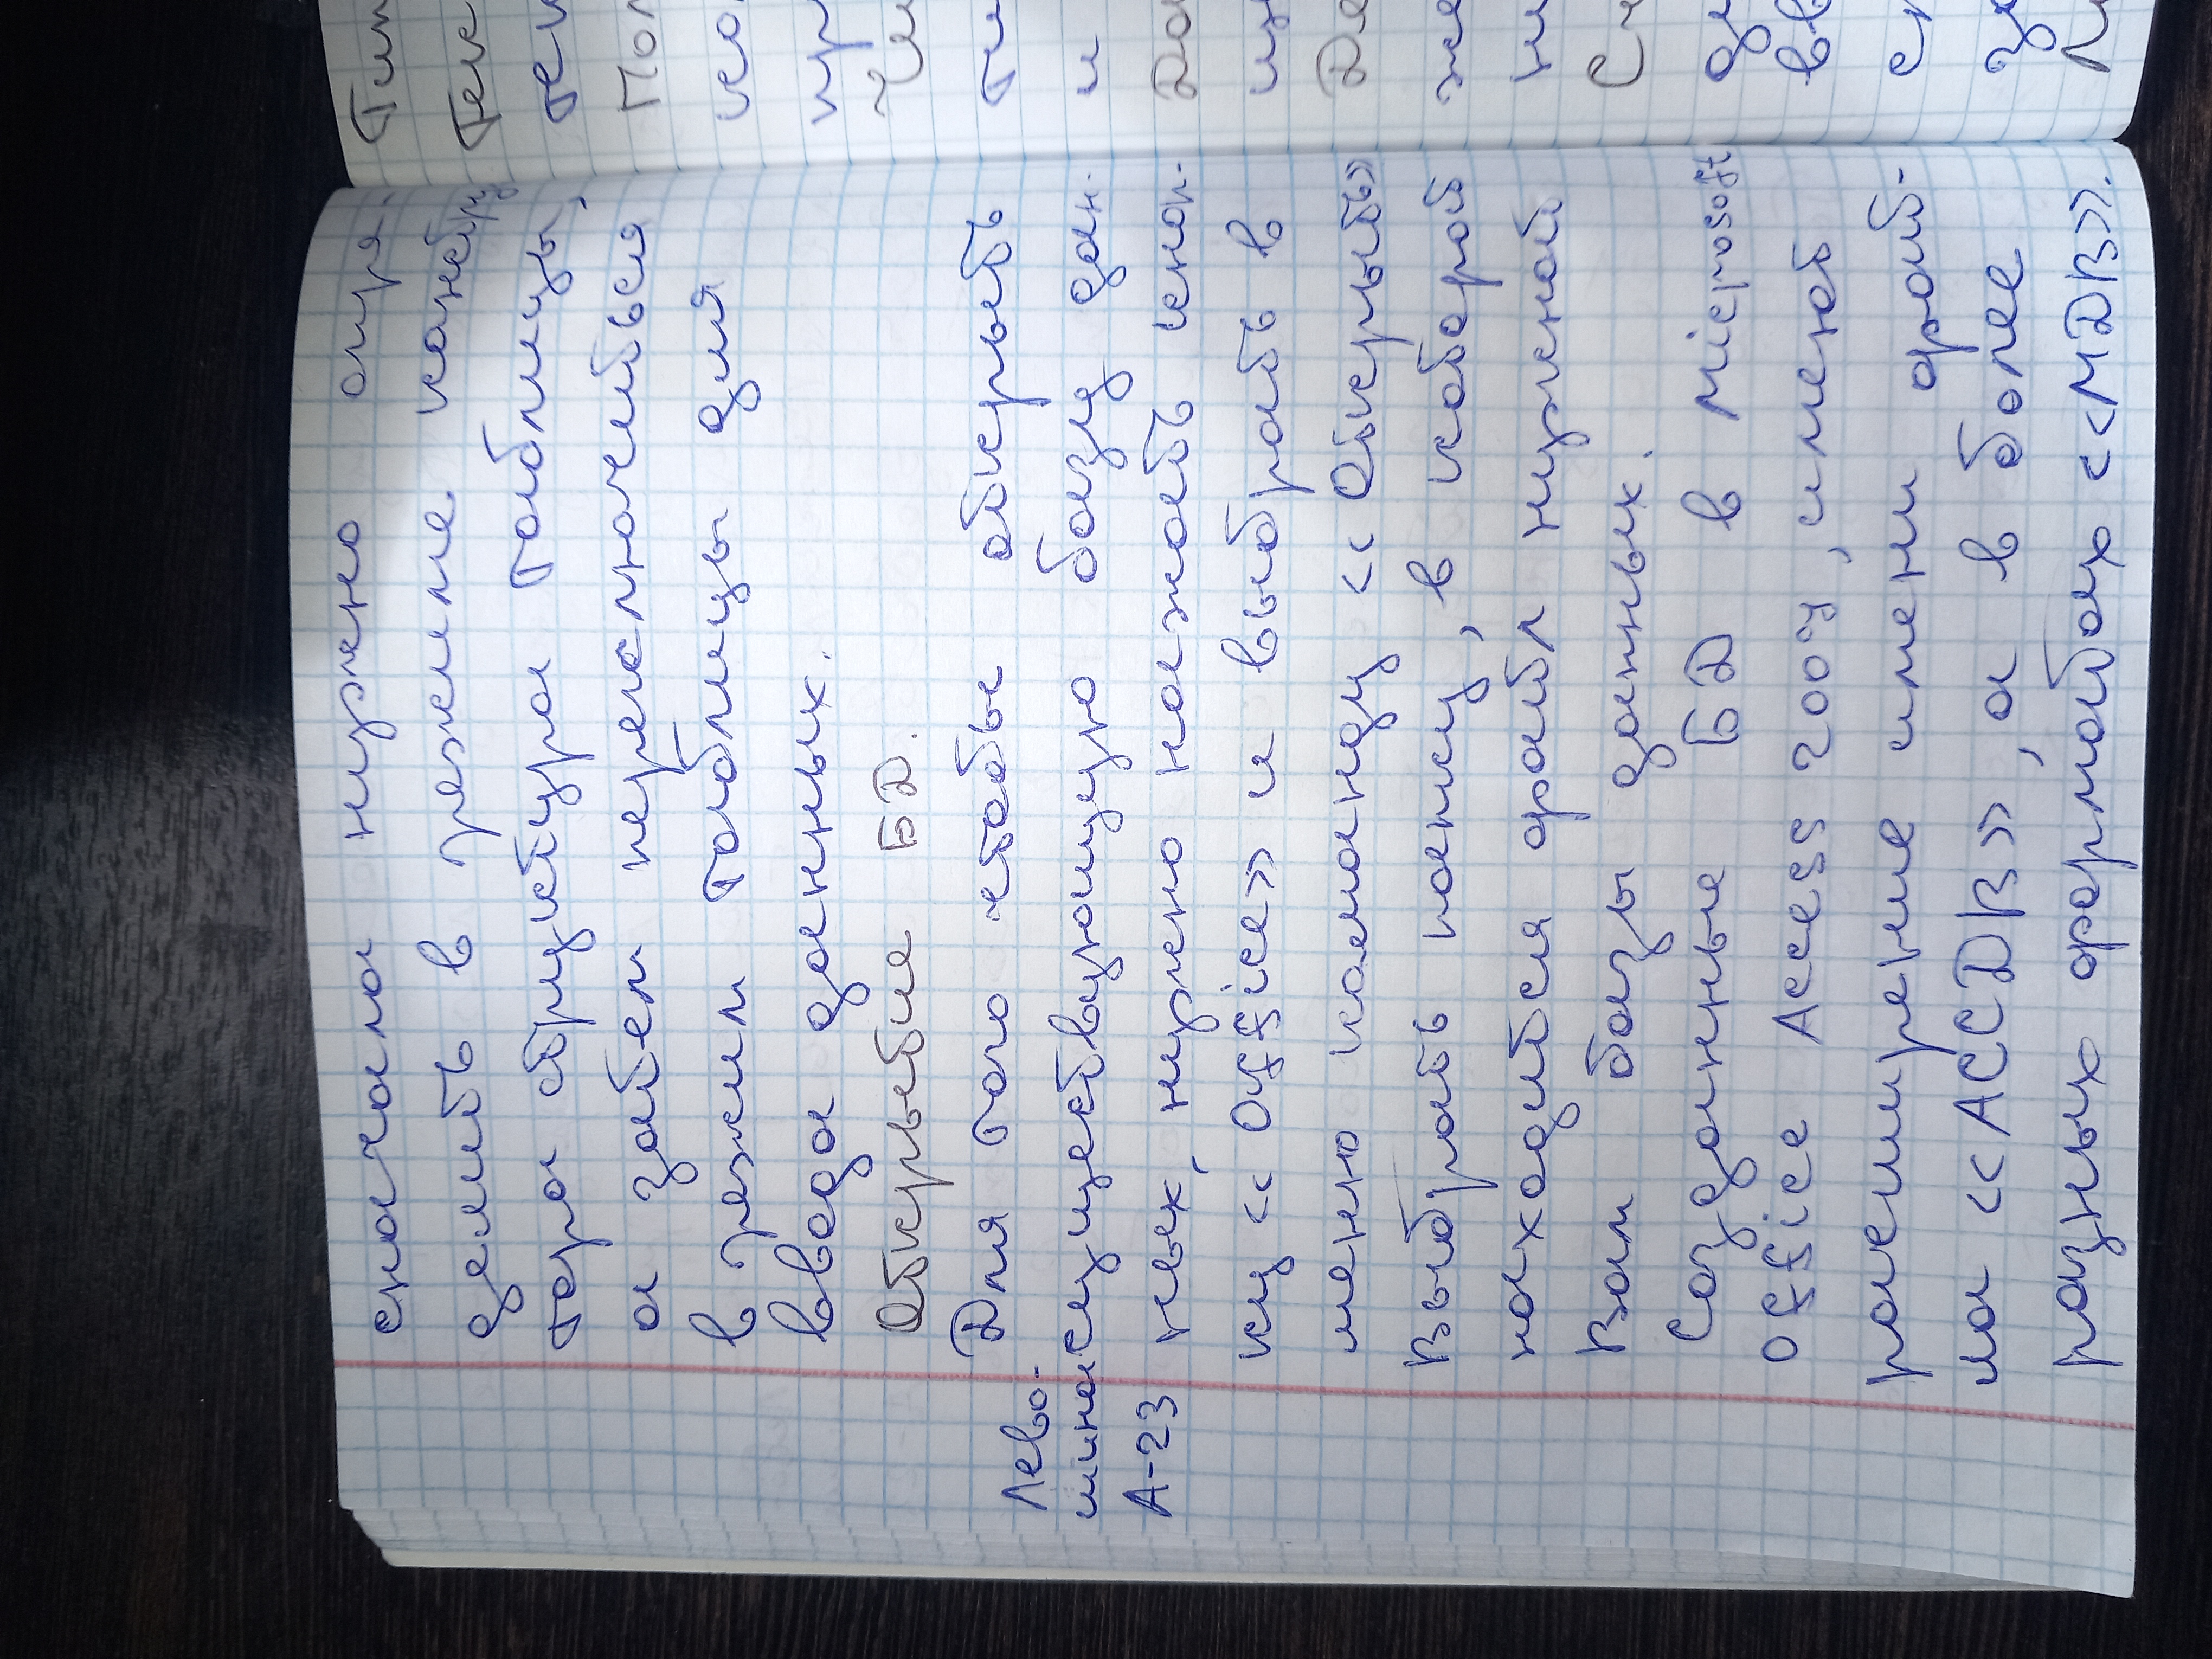 сначала нужно опре-
делить в режиме констру
тера структура таблицы,
а затем переключиться
в режим таблицы для
ввода данных.
Открытие БД.
Для того чтобы открыть
существующую базу дан-
ных, нужно нажать кноп-
ку «Office» и выбрать в
меню команду «Открыть»
Выбрать папку, в которой
находится файл нужной
Вам базы данных.
Созданные БД в Microsoft
Office Access 2007, имеет
расширение имени фай-
ла «ACCDB», а в более
разных форматах «MDB».
Лево-
шина
А-23